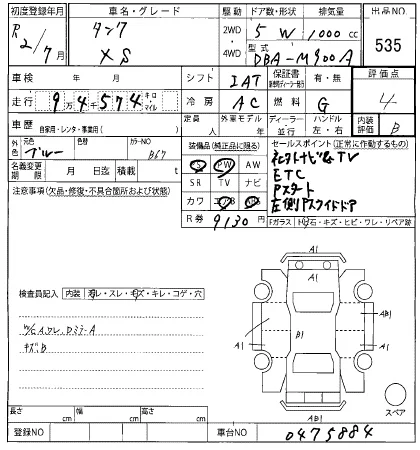 初度登録年月 車名・グレード 駆動 ドア数・形状 排気量 出品NO
R 2/7月 タンク XS 2WD 4WD 5 W 1000 cc 535
型式 DBA-M900A
車検 年 月 シフト IAT 保証書 有・無 評価点
走行 9万4千574 キロ・マイル 冷房 AC 燃料 G 4
車歴 自家用・レンタ・事業用( ) 定員 人 外車モデル 年 ディーラー 並行 ハンドル 左・右 内装評価 B
外色 元色 ブルー 色替 カラーNO B67 装備品(純正品に限る) セールスポイント(正常に作動するもの)
名義変更期限 月 日迄 積載 t SR PW AW
注意事項(欠品・修復・不具合箇所および状態) SR TV ナビ ETC
カワ エアB Pスタート
R券 9130円 左側Pスライドドア
Fガラス トビ石・キズ・ヒビ・ワレ・リペア跡
検査員記入 内装 ヨゴレ・スレ・キズ・キレ・コゲ・穴
W/Cスレ、Dミラ-A
キズB
A1
A1
B1
AB1
A1
A1
AB1
スペア
長さ cm 幅 cm 高さ cm
登録NO 車台NO 0475884